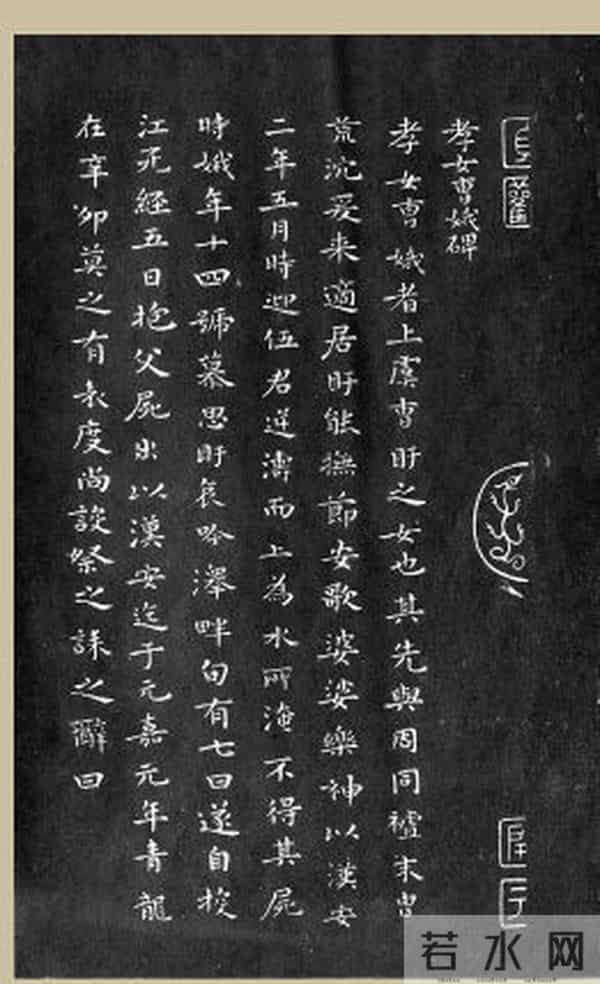 孝女曹娥碑
孝女曹娥者上虞曹盱之女也其先與周同祖末胄
荒沈爰来適居盱能撫節安歌婆娑樂神以漢安
二年五月時迎伍君逆濤而上為水所淹不得其屍
時娥年十四號慕思盱哀吟澤畔旬有七日遂自投
江死經五日抱父屍出以漢安迄于元嘉元年青龍
在辛卯莫之有表度尚設祭之誄之辭曰
若水网